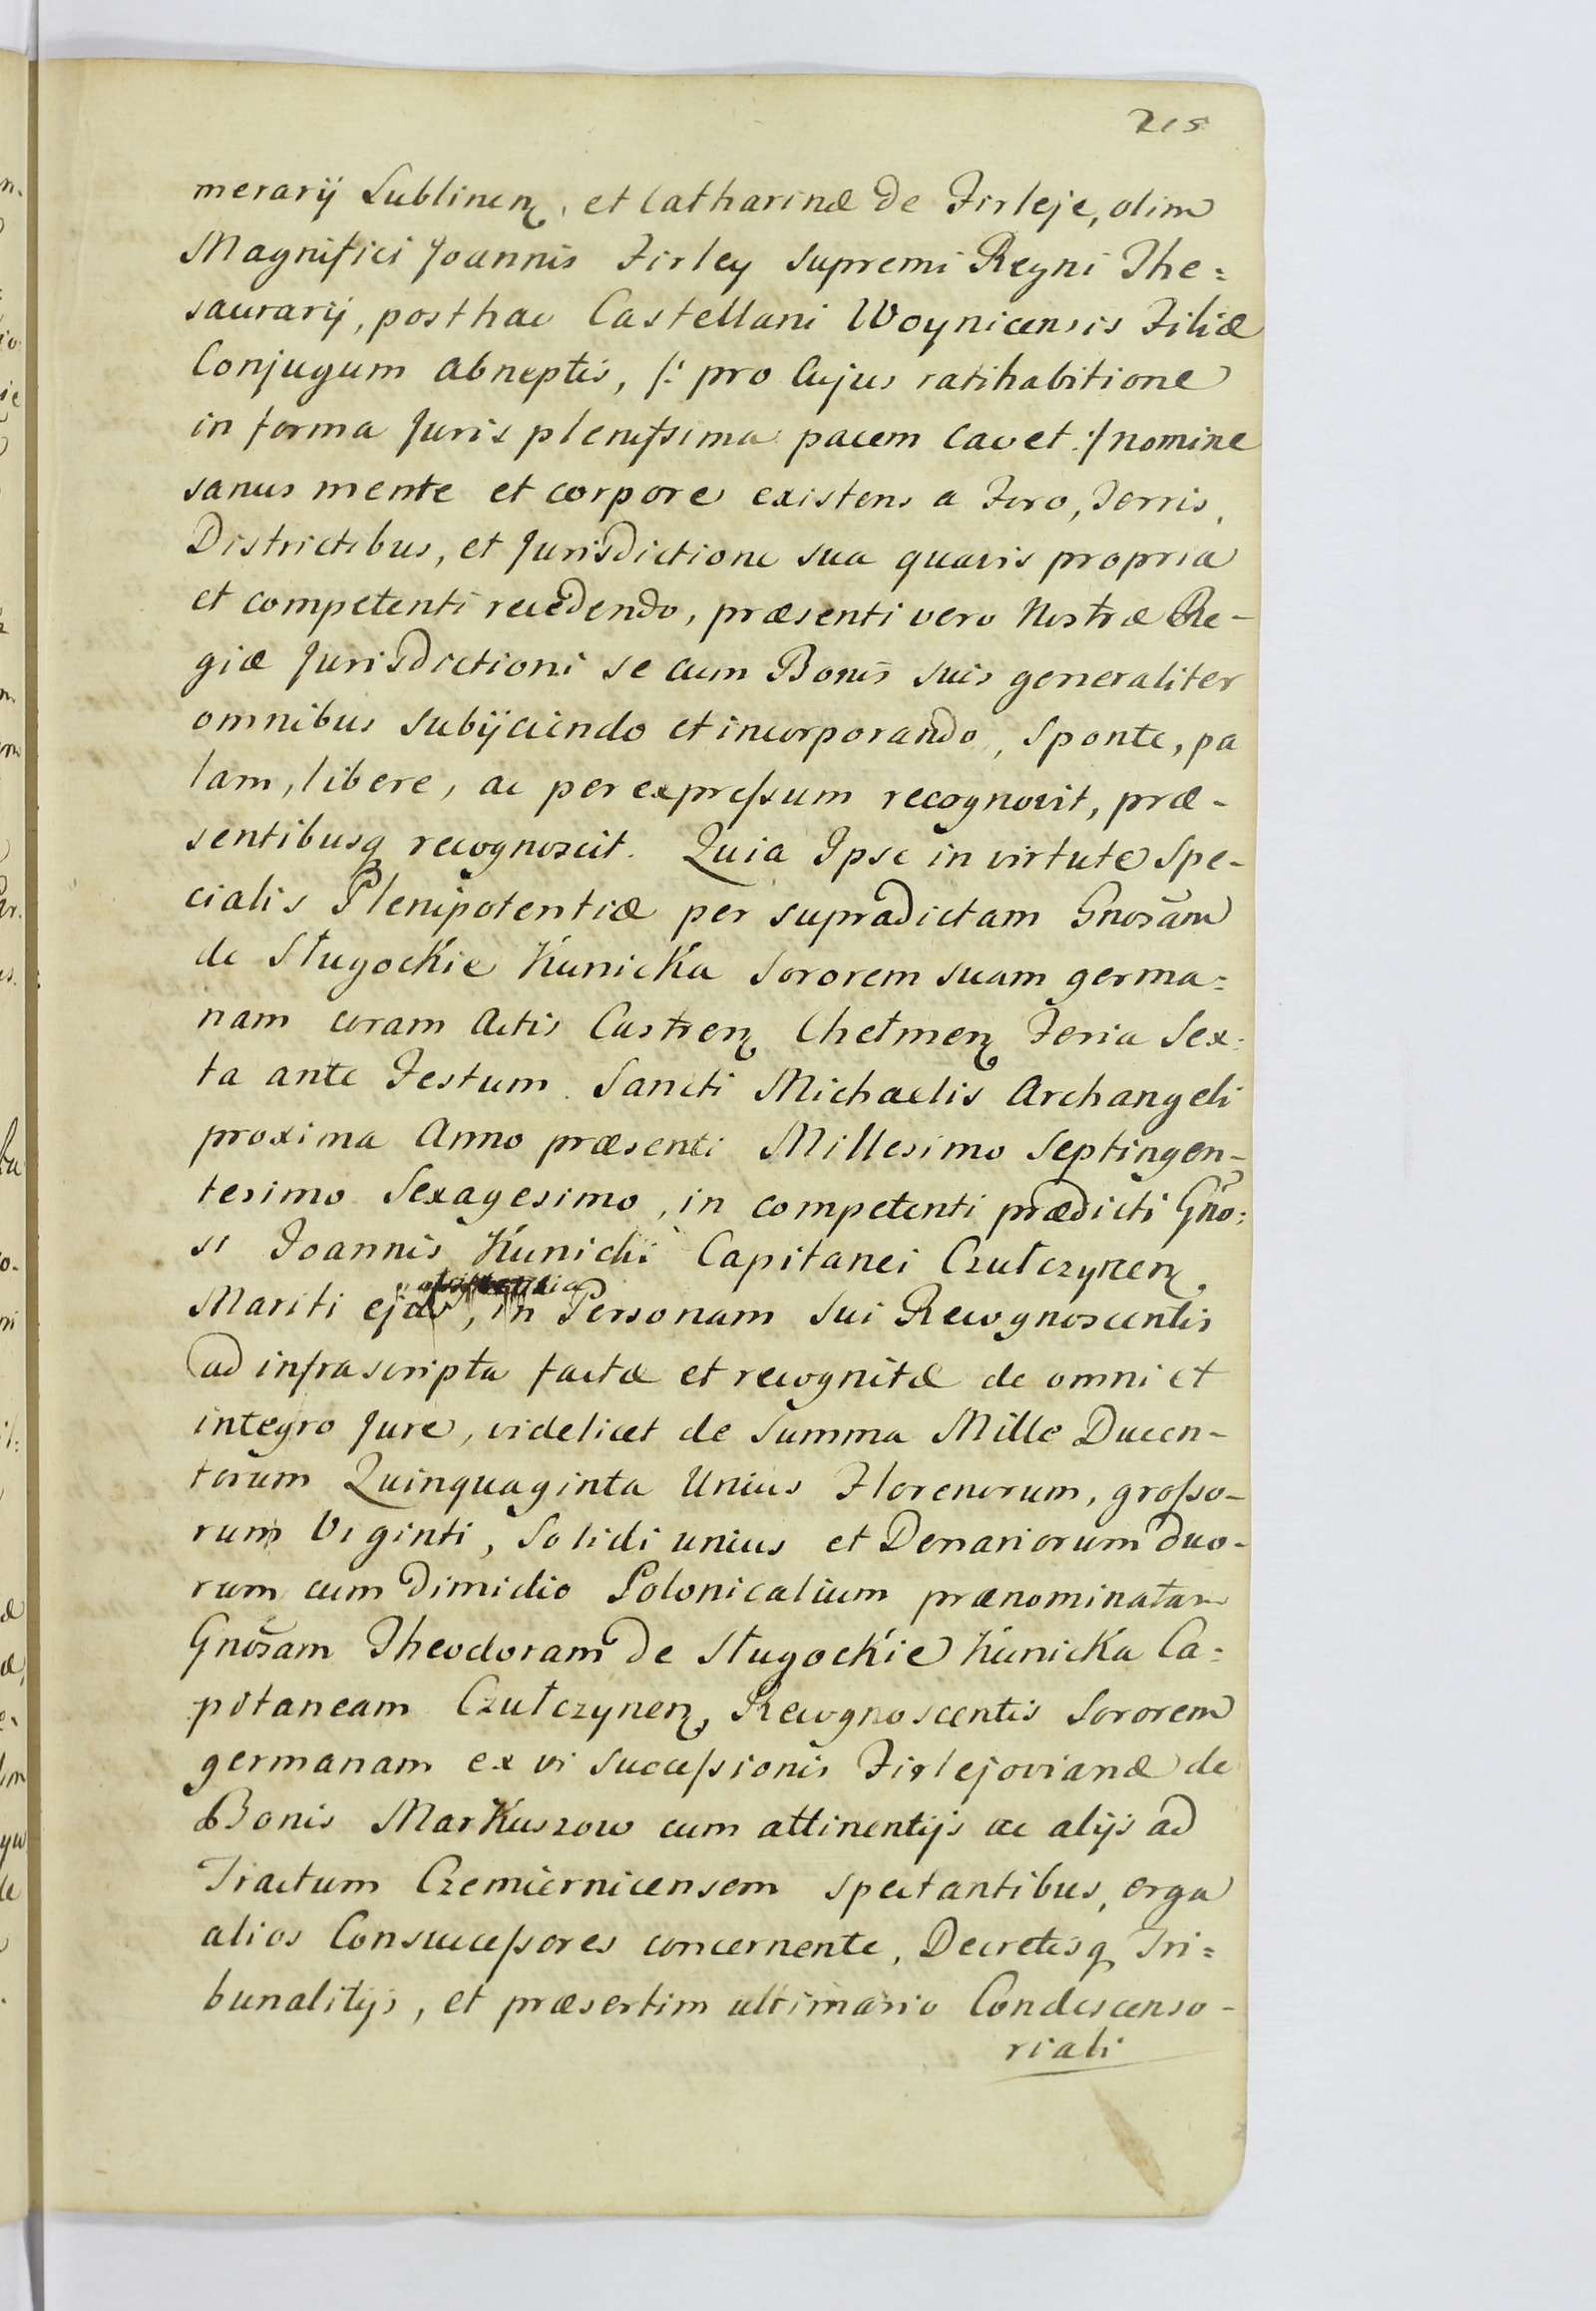 215
merarij Lublinen, et Catharinæ de Firleje, olim
Magnifici Joannis Firley Supremi Regni The=
saurarij, posthac Castellani Woynicensis Filiæ
Conjugum abneptis, /: pro cujus ratihabitione
in forma Juris plenissima pacem cavet :/ nomine
sanus mente et corpore existens a Foro, Terris,
Districtibus, et Jurisdictione sua quavis propria
et competenti recedendo, præsenti vero Nostræ Re-
giæ Jurisdictioni se cum Bonis suis generaliter
omnibus subijciendo et incorporando, Sponte, pa
lam, libere, ac per expressum recognovit, præ-
sentibusq recognoscit. Quia Ipse in virtute Spe-
cialis Plenipotentiæ per supradictam Gnosam
de Sługockie Kunicka Sororem suam germa=
nam coram Actis Castren Chełmen Feria Sex=
ta ante Festum Sancti Michaelis Archangeli
proxima Anno præsenti Millesimo Septingen-
tesimo Sexagesimo, in competenti prædicti Gno=
si Joannis Kunicki Capitanei Czułczynen
Mariti ejus, in Personam Sui Recognoscentis
ad infrascripta factæ et recognitæ de omni et
integro Jure, videlicet de Summa Mille Ducen-
torum Quinquaginta Unius Florenorum, grosso-
rum Viginti, Solidi unius et Denariorum duo-
rum cum dimidio Polonicalium prænominatam
Gnosam Theodoram de Sługockie Kunicka Ca=
pitaneam Czułczynen, Recognoscentis Sororem
germanam ex vi Successionis Firlejovianæ de
Bonis Markuszow cum attinentijs ac alijs ad
Tractum Czemiernicensem spectantibus, erga
alios Consuccessores concernente, Decretisq Tri=
bunalitijs, et præsertim ultimario Condescenso-
riali